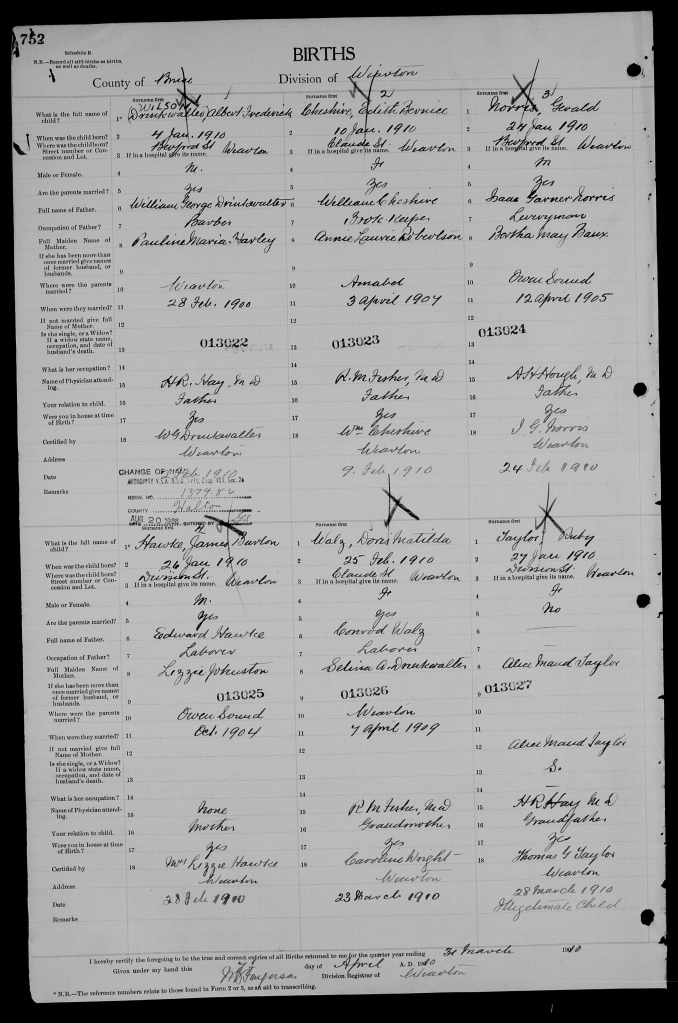 752
Schedule B.
N.B.—Record all still-births as births, as well as deaths.
BIRTHS
County of Bruce Division of Wiarton
1 2 3
Surname first Surname first Surname first
WILSON
What is the full name of child? 1* Drinkwalter, Albert Frederick Cheshire, Edith Bernice Norris, Gerald
When was the child born? 2 4 Jan. 1910 2 10 Jan. 1910 2 24 Jan 1910
Where was the child born? Street number or Concession and Lot. 3 If in a hospital give its name. Berford St Wiarton 3 If in a hospital give its name. Claude St Wiarton 3 If in a hospital give its name. Berford St Wiarton
Male or Female. 4 M. 4 F 4 M
Are the parents married? 5 Yes 5 Yes 5 Yes
Full name of Father. 6 William George Drinkwalter 6 William Cheshire 6 Isaac Garner Norris
Occupation of Father? 7 Barber 7 Book Keeper 7 Liveryman
Full Maiden Name of Mother. 8 Pauline Maria 8 Annie Laurie Robertson 8 Bertha May
If she has been more than once married give names of former husband, or husbands. 9 9 9
Where were the parents married? 10 Wiarton 10 Amabel 10 Owen Sound
When were they married? 11 28 Feb. 1900 11 3 April 1907 11 12 April 1905
If not married give full Name of Mother. 12 12 12
Is she single, or a Widow? If a widow state name, occupation, and date of husband's death. 13 013022 13 013023 13 013024
What is her occupation? 14 14 14
Name of Physician attending. 15 H.R. Hay, M D 15 R. M. Fisher, M D 15 A H Hough, M D
Your relation to child. 16 Father 16 Father 16 Father
Were you in house at time of Birth? 17 Yes 17 Yes 17 Yes
Certified by 18 W G Drinkwalter 18 Wm Cheshire 18 I. G. Norris
Address Wiarton Wiarton Wiarton
Date Feb. 1910 9 Feb 1910 24 Feb 1910
Remarks CHANGE OF NAME
SERIAL NO.
COUNTY Halton
AUG 20
4
Surname first Surname first Surname first
What is the full name of child? 1* Hawke, James Burton 1* Walz, Doris Matilda 1* Taylor, Ruby
When was the child born? 2 26 Jan 1910 2 25 Feb. 1910 2 27 Jan 1910
Where was the child born? Street number or Concession and Lot. 3 If in a hospital give its name. Division St. Wiarton 3 If in a hospital give its name. Claude St Wiarton 3 If in a hospital give its name. Division St. Wiarton
Male or Female. 4 M. 4 F 4 F
Are the parents married? 5 Yes 5 Yes 5 No
Full name of Father. 6 Edward Hawke 6 Conrod Walz 6 —
Occupation of Father? 7 Laborer 7 Laborer 7 —
Full Maiden Name of Mother. 8 Lizzie Johnston 8 Selina A. Drinkwalter 8 Alice Maud Taylor
If she has been more than once married give names of former husband, or husbands. 9 013025 9 013026 9 013027
Where were the parents married? 10 Owen Sound 10 Wiarton 10
When were they married? 11 Oct. 1904 11 7 April 1909 11
If not married give full Name of Mother. 12 12 12 Alice Maud Taylor
Is she single, or a Widow? If a widow state name, occupation, and date of husband's death. 13 13 13 S.
What is her occupation? 14 14 14
Name of Physician attending. 15 None 15 R. M Fisher, M D 15 H R Hay M D
Your relation to child. 16 Mother 16 Grandmother 16 Grandfather
Were you in house at time of Birth? 17 Yes 17 Yes 17 Yes
Certified by 18 Mrs Lizzie Hawke 18 Caroline Wright 18 Thomas G Taylor
Address Wiarton Wiarton Wiarton
Date 28 Feb 1910 23 March 1910 28 March 1910
Remarks Illegitimate Child
I hereby certify the foregoing to be the true and correct entries of all Births returned to me for the quarter ending 31 March 1910
Given under my hand this day of April A. D. 1910
Division Registrar of Wiarton
* N.B.—The reference numbers relate to those found in Form 2 or 3, as an aid to transcribing.